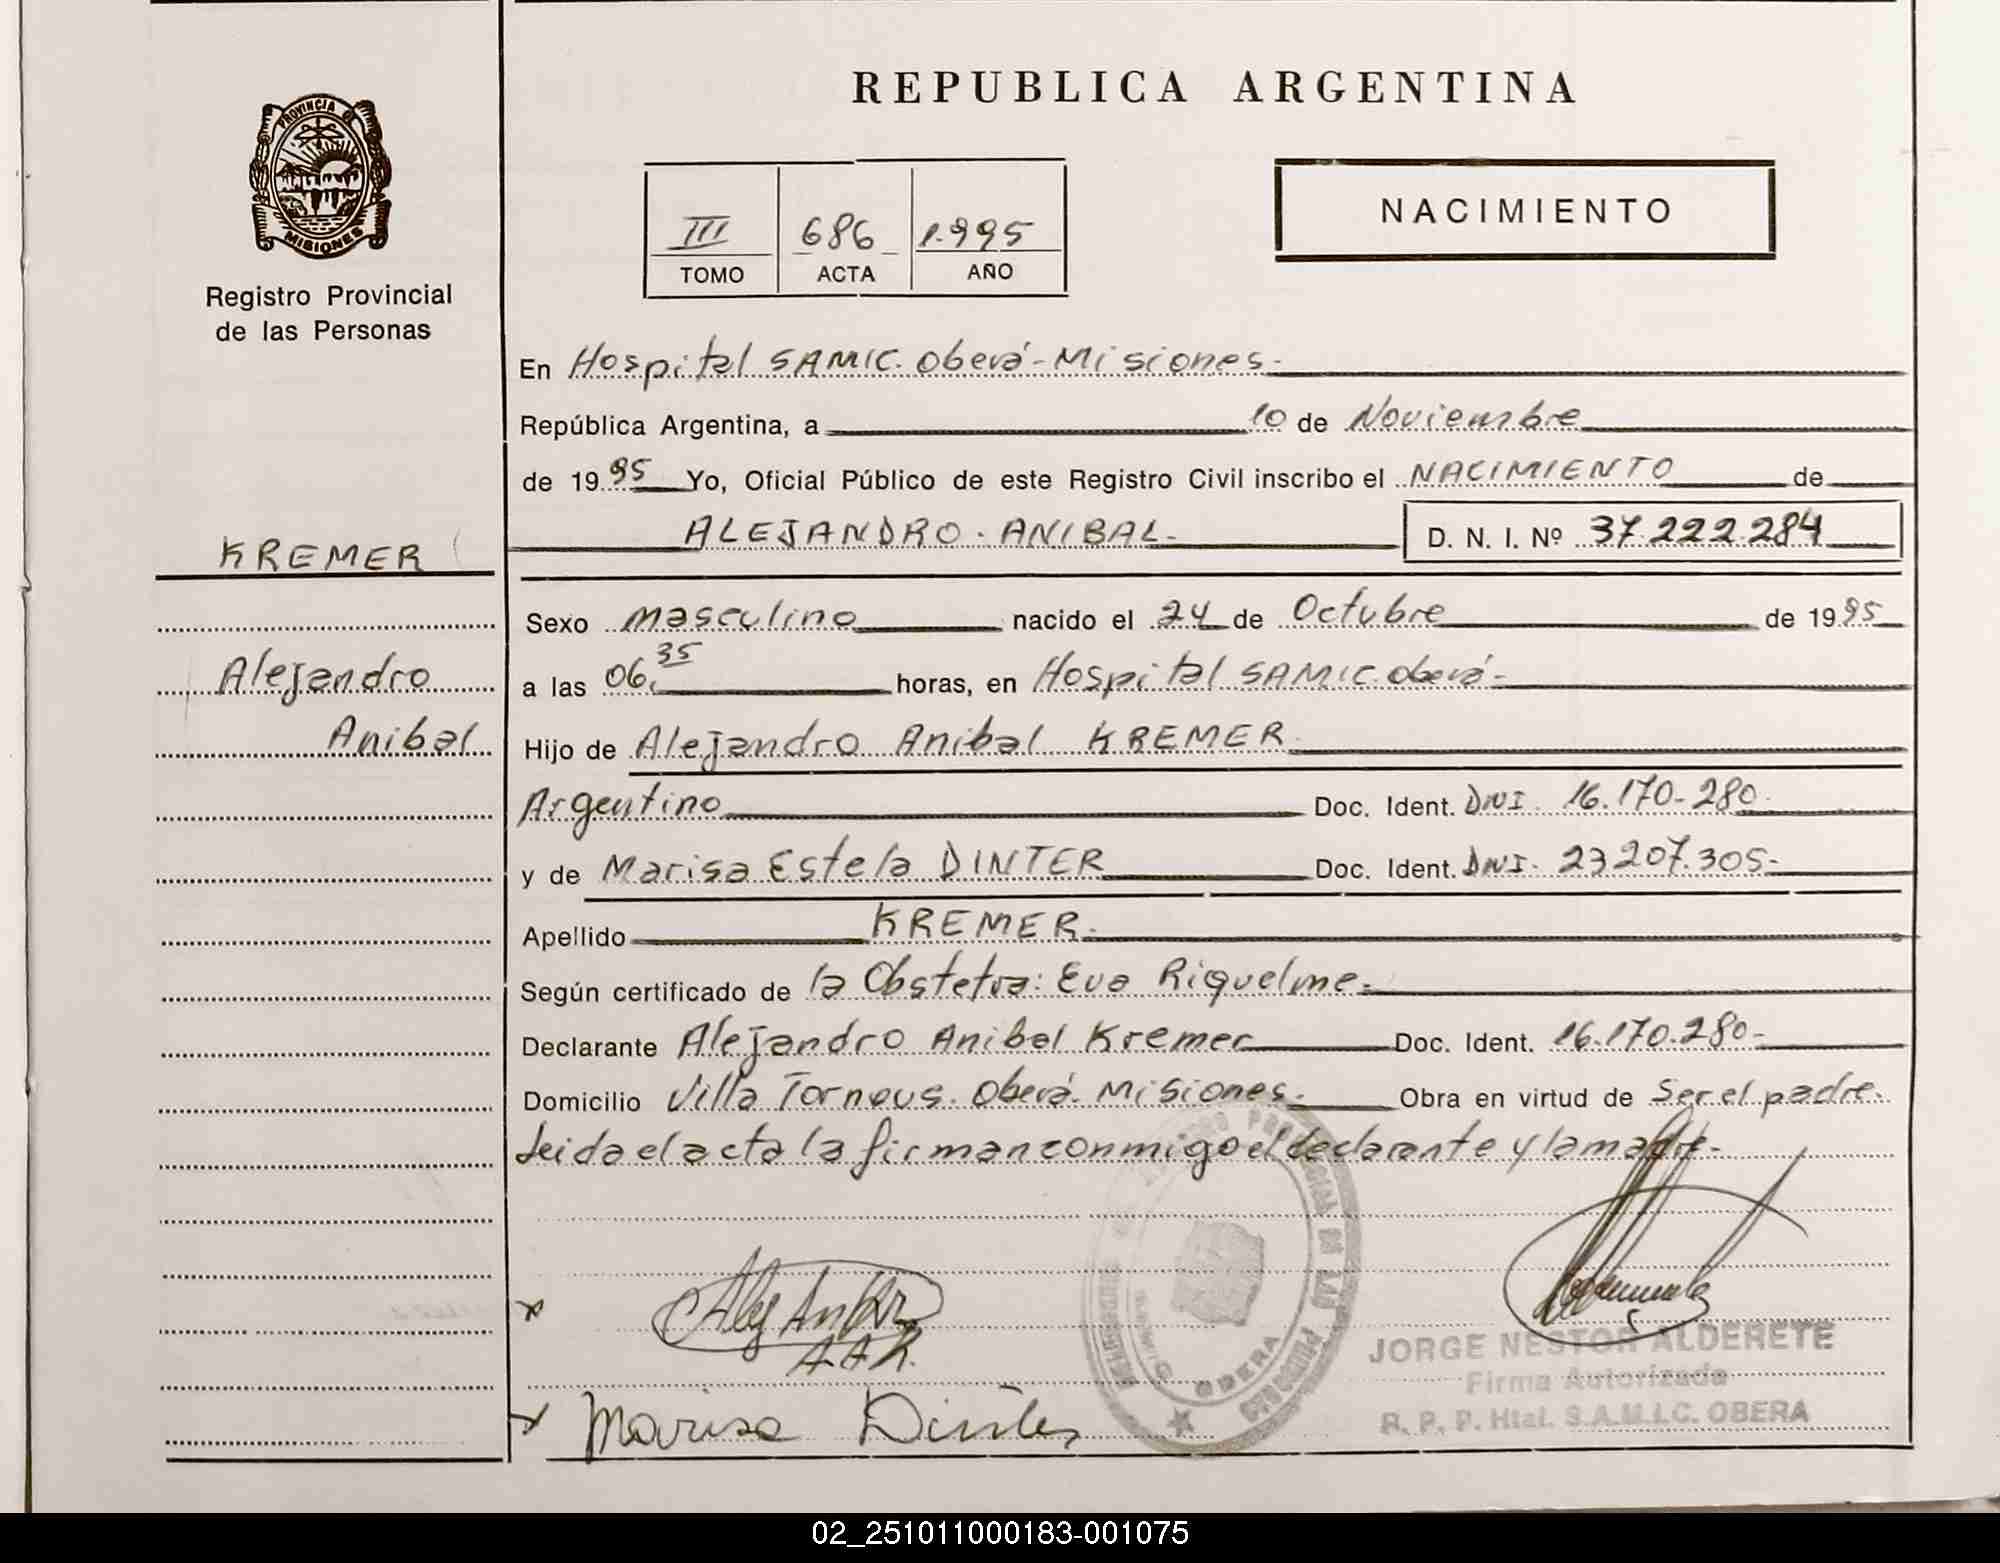 REPUBLICA ARGENTINA
PROVINCIA DE
MISIONES
Registro Provincial
de las Personas
III 686 1.995
TOMO ACTA AÑO
NACIMIENTO
En Hospital SAMIC. Oberá-Misiones-
República Argentina, a 10 de Noviembre
de 1995 Yo, Oficial Público de este Registro Civil inscribo el NACIMIENTO de
ALEJANDRO. ANIBAL- D. N. I. Nº 37.222.284
KREMER
Alejandro
Anibal
Sexo masculino nacido el 24 de Octubre de 1995
a las 06.35 horas, en Hospital SAMIC. Oberá-
Hijo de Alejandro Anibal KREMER
Argentino Doc. Ident. DNI. 16.170-280
y de Marisa Estela DINTER Doc. Ident. DNI. 23207.305-
Apellido KREMER.
Según certificado de la Obstetra: Eva Riquelme.
Declarante Alejandro Anibal Kremer Doc. Ident. 16.170.280-
Domicilio Villa Torneus. Oberá. Misiones. Obra en virtud de Ser el padre.
Leida el acta la firman conmigo el declarante y la madre-
A.A.K.
Marisa Dinter
OBERA
JORGE NESTOR ALDERETE
Firma Autorizada
R. P. P. Htal. S.A.M.I.C. OBERA
02_251011000183-001075